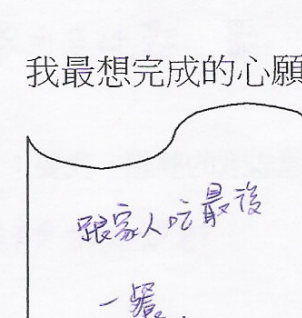 我最想完成的心願
跟家人吃最後
一餐.